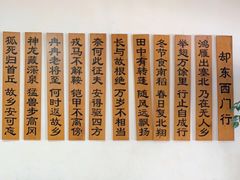 却东西门行
鸿雁出塞北 乃在无人乡
举翅万馀里 行止自成行
冬节食南稻 春日复北翔
田中有转蓬 随风远飘扬
长与故根绝 万岁不相当
奈何此征夫 安得驱四方
戎马不解鞍 铠甲不离傍
冉冉老将至 何时返故乡
神龙藏深泉 猛兽步高冈
狐死归首丘 故乡安可忘